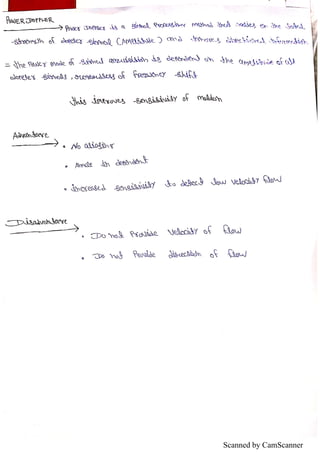 POWER DOPPLER
→ Power Doppler is a signal Processing method that relies on the total
strength of doppler signal (Amplitude) and ignores directional information
= the Power mode of signal is dependent on the amplitude of all
doppler signals, regardless of frequency shift
this improves sensitivity of
Advantage
→ • No aliasing
• Angle in dependent
• Increased sensitivity to detect low velocity flow
Disadvantage
→ • Do not Provide Velocity of flow
• Do not Provide direction of flow
Scanned by CamScanner